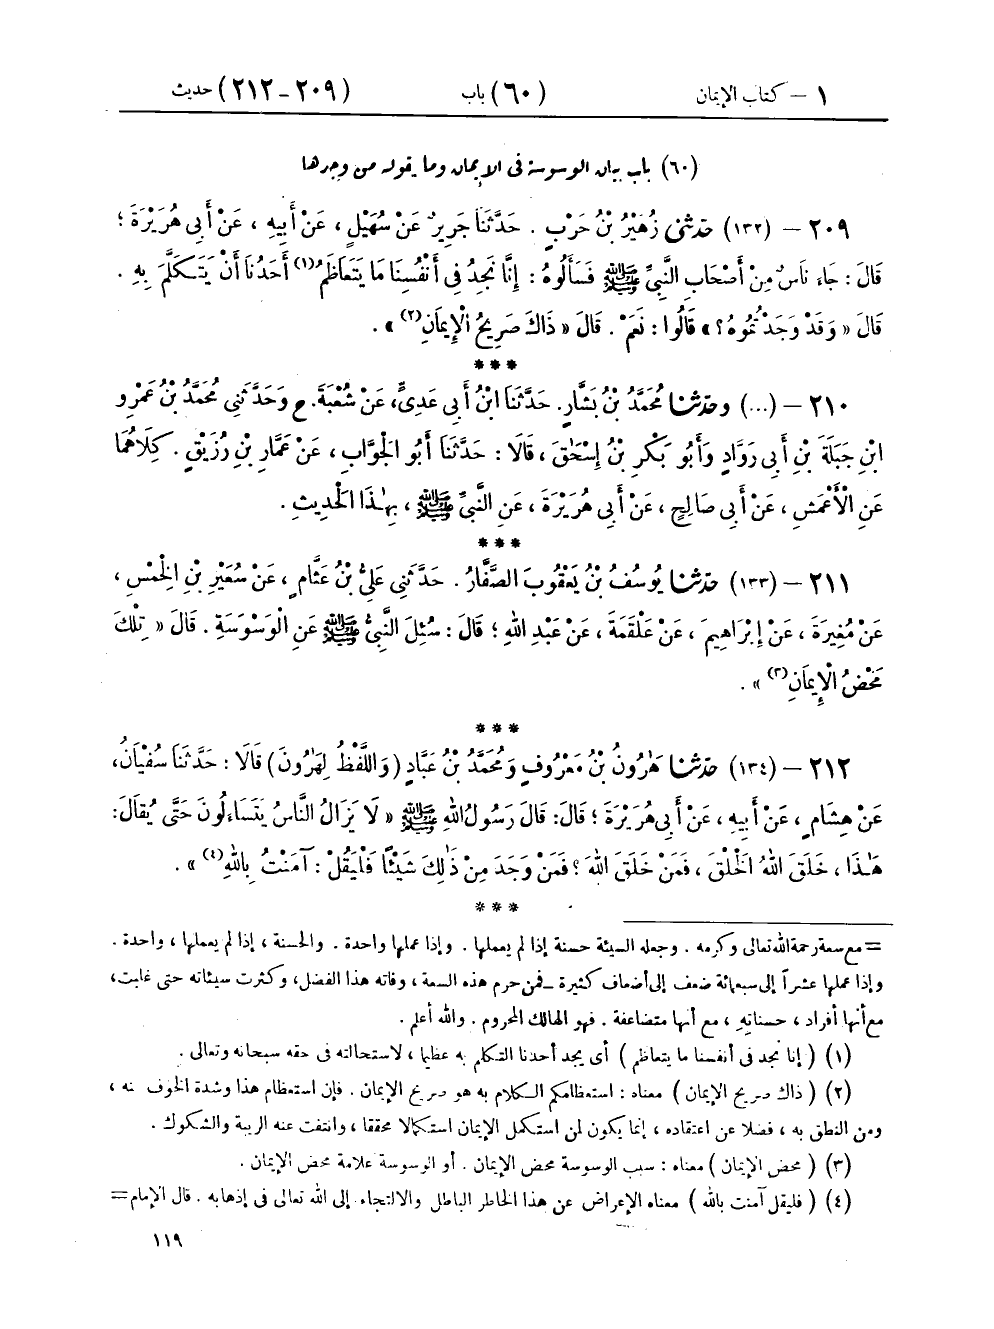 ١ – كتاب الإيمان (٦٠) باب (٢٠٩ – ٢١٢) حديث
(٦٠) باب بيان الوسوسة فى الإيمان وما يقوله من وجدها
٢٠٩ – (١٣٢) حدثنى زُهَيْرُ بْنُ حَرْبٍ . حَدَّثَنَا جَرِيرٌ عَنْ سُهَيْلٍ ، عَنْ أَبِيهِ ، عَنْ أَبِى هُرَيْرَةَ ؛
قَالَ : جَاءَ نَاسٌ مِنْ أَصْحَابِ النَّبِىِّ ﷺ فَسَأَلُوهُ : إِنَّا نَجِدُ فِى أَنْفُسِنَا مَا يَتَعَاظَمُ(١) أَحَدُنَا أَنْ يَتَكَلَّمَ بِهِ .
قَالَ « وَقَدْ وَجَدْتُمُوهُ؟ » قَالُوا : نَعَمْ . قَالَ « ذَاكَ صَرِيحُ الْإِيمَانِ(٢) » .
* * *
٢١٠ – (...) وحدثنا مُحَمَّدُ بْنُ بَشَّارٍ. حَدَّثَنَا ابْنُ أَبِى عَدِىٍّ، عَنْ شُعْبَةَ. ح وَحَدَّثَنِى مُحَمَّدُ بْنُ عَمْرِو
ابْنِ جَبَلَةَ بْنِ أَبِى رَوَّادٍ وَأَبُو بَكْرِ بْنُ إِسْحٰقَ ، قَالَا : حَدَّثَنَا أَبُو الْجَوَّابِ ، عَنْ عَمَّارِ بْنِ رُزَيْقٍ . كِلَاهُمَا
عَنِ الْأَعْمَشِ ، عَنْ أَبِى صَالِحٍ ، عَنْ أَبِى هُرَيْرَةَ ، عَنِ النَّبِىِّ ﷺ ، بِهٰذَا الْحَدِيثِ .
* * *
٢١١ – (١٣٣) حدثنا يُوسُفُ بْنُ يَعْقُوبَ الصَّفَّارُ . حَدَّثَنِى عَلِىُّ بْنُ عَثَّامٍ ، عَنْ سُعَيْرِ بْنِ الْخِمْسِ ،
عَنْ مُغِيرَةَ ، عَنْ إِبْرَاهِيمَ ، عَنْ عَلْقَمَةَ ، عَنْ عَبْدِ اللهِ ؛ قَالَ : سُئِلَ النَّبِىُّ ﷺ عَنِ الْوَسْوَسَةِ . قَالَ « تِلْكَ
مَحْضُ الْإِيمَانِ(٣) » .
* * *
٢١٢ – (١٣٤) حدثنا هٰرُونُ بْنُ مَعْرُوفٍ وَمُحَمَّدُ بْنُ عَبَّادٍ (وَاللَّفْظُ لِهٰرُونَ) قَالَا : حَدَّثَنَا سُفْيَانُ،
عَنْ هِشَامٍ ، عَنْ أَبِيهِ ، عَنْ أَبِى هُرَيْرَةَ ؛ قَالَ: قَالَ رَسُولُ اللهِ ﷺ « لَا يَزَالُ النَّاسُ يَتَسَاءَلُونَ حَتَّى يُقَالَ:
هٰذَا ، خَلَقَ اللهُ الْخَلْقَ ، فَمَنْ خَلَقَ اللهَ ؟ فَمَنْ وَجَدَ مِنْ ذٰلِكَ شَيْئًا فَلْيَقُلْ : آمَنْتُ بِاللهِ(٤) » .
* * *
= مع سعة رحمة الله تعالى وكرمه . وجعله السيئة حسنة إذا لم يعملها . وإذا عملها واحدة . والحسنة ، إذا لم يعملها ، واحدة .
وإذا عملها عشراً إلى سبعمائة ضعف إلى أضعاف كثيرة – فمن حرم هذه السعة ، وفاته هذا الفضل، وكثرت سيئاته حتى غلبت،
مع أنها أفراد ، حسناته ، مع أنها متضاعفة . فهو الهالك المحروم . والله أعلم .
(١) ( إنا نجد فى أنفسنا ما يتعاظم ) أى يجد أحدنا التكلم به عظيما ، لاستحالته فى حقه سبحانه وتعالى .
(٢) ( ذاك صريح الإيمان ) معناه : استعظامكم الكلام به هو صريح الإيمان . فإن استعظام هذا وشدة الخوف منه ،
ومن النطق به ، فضلا عن اعتقاده ، إنما يكون لمن استكمل الإيمان استكمالا محققا ، وانتفت عنه الريبة والشكوك .
(٣) ( محض الإيمان ) معناه : سبب الوسوسة محض الإيمان . أو الوسوسة علامة محض الإيمان .
(٤) ( فليقل آمنت بالله ) معناه الإعراض عن هذا الخاطر الباطل والالتجاء إلى الله تعالى فى إذهابه . قال الإمام =
١١٩